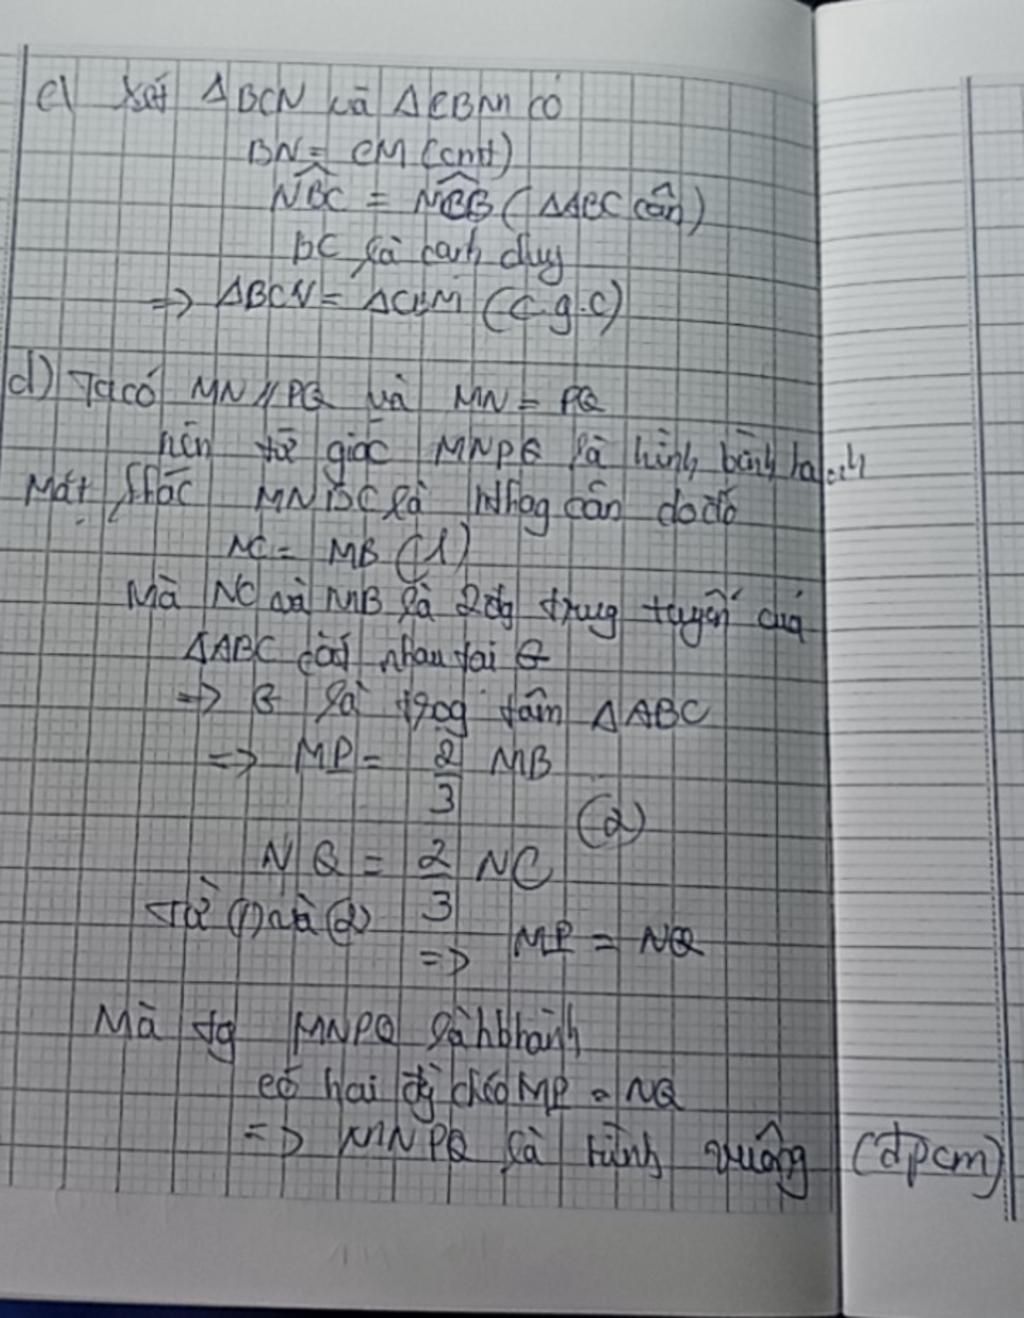 c) Xét ΔBCN và ΔCBM có
BN = CM (cmt)
NBC = MCB (ΔABC cân)
BC là cạnh chug
=> ΔBCN = ΔCBM (c.g.c)
d) Ta có MN // PQ và MN = PQ
nên tứ giác MNPQ là hình bình hành
Mặt khác MNBC là hthag cân do đó
NC = MB (1)
Mà NC và MB là 2 đg trug tuyến của
ΔABC cắt nhau tại G
=> G là trọg tâm ΔABC
=> MP = 2/3 MB
(2)
NQ = 2/3 NC
Từ (1) và (2)
=> MP = NQ
Mà tg MNPQ là hbhành
có hai đg chéo MP = NQ
=> MNPQ là hình vuông (đpcm)